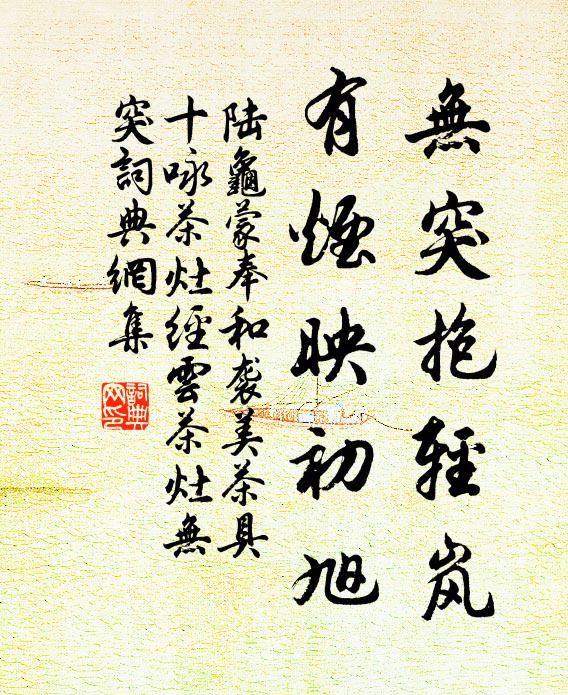 無突抱輕岚
有煙映初旭
陆龜蒙奉和袭美茶具
十咏茶灶經雲茶灶無
突詞典網集
詞典网印